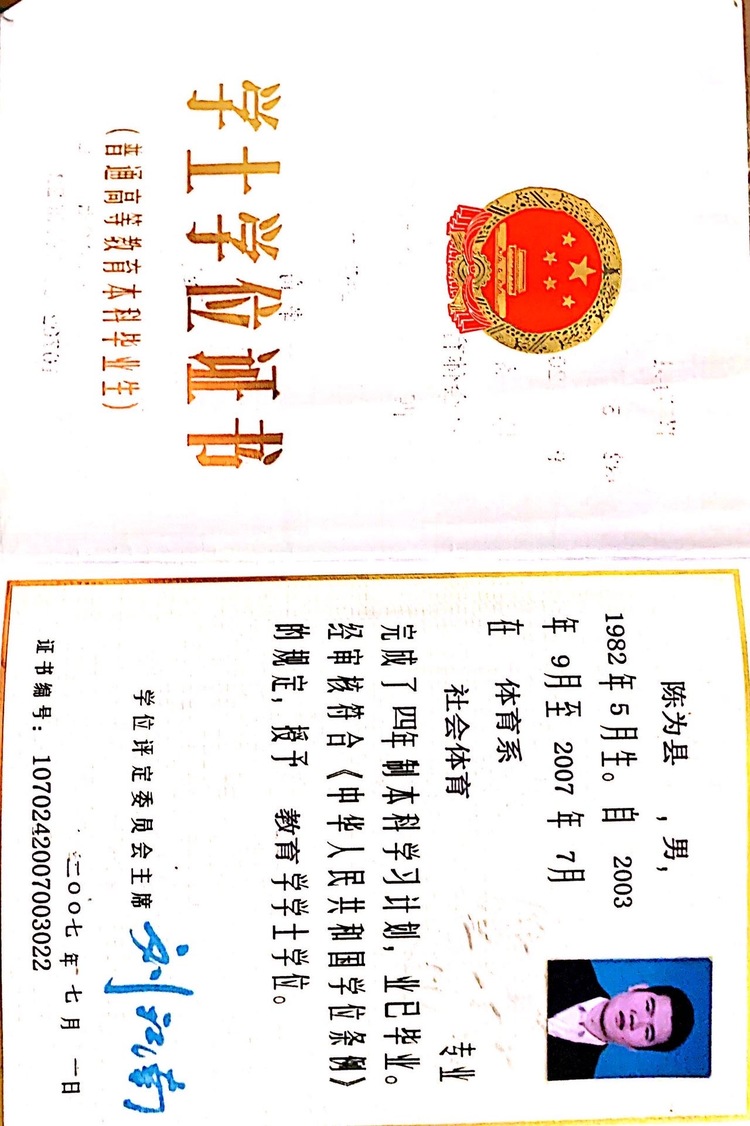 学士学位证书
(普通高等教育本科毕业生)
陈为县 ，男，
1982 年 5 月生。自 2003
年 9月至 2007 年 7月
在 体育系
社会体育 专业
完成了四年制本科学习计划，业已毕业。
经审核符合《中华人民共和国学位条例》
的规定，授予 教育学学士学位。
学位评定委员会主席 刘江南
二〇〇七年 七月 一日
证书编号：1070242007003022